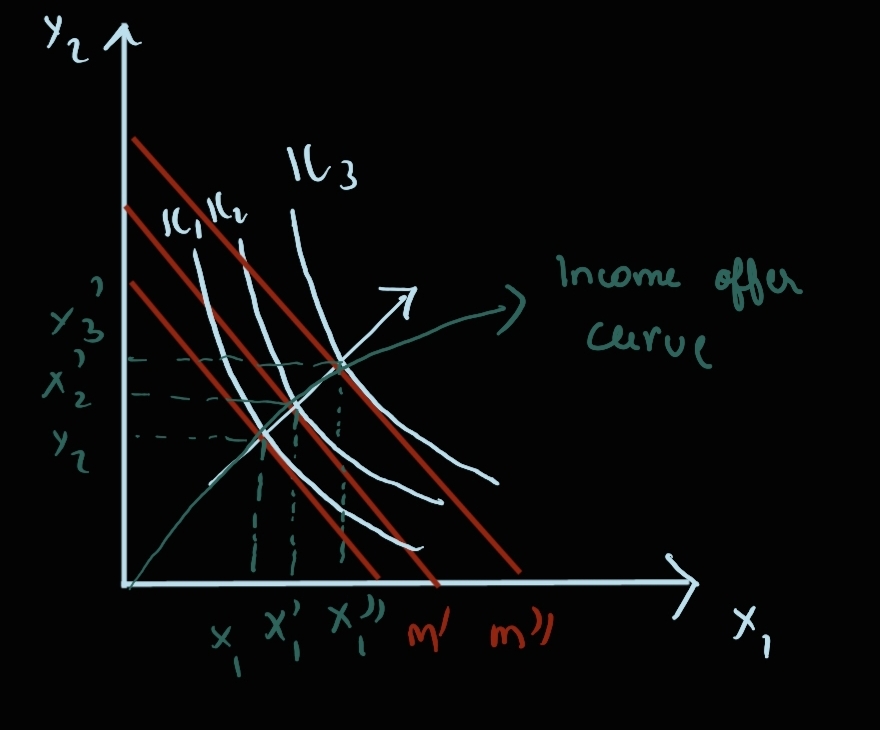 X₂
IC₃
IC₁ IC₂
Income offer
curve
X₃'
X₂'
X₂
X₁ X₁' X₁'' m' m''
X₁